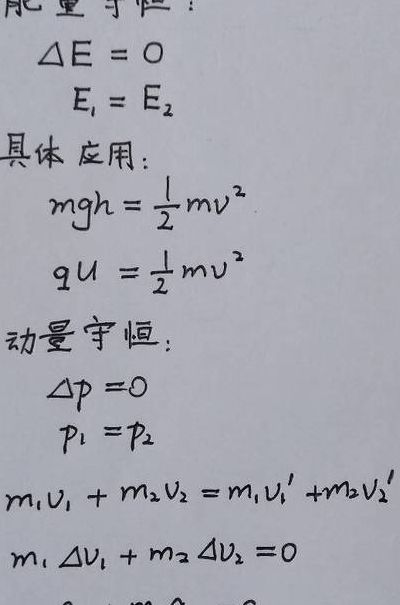 能量守恒：
ΔE = 0
E₁ = E₂
具体应用：
mgh = ½mv²
qU = ½mv²
动量守恒：
Δp = 0
p₁ = p₂
m₁v₁ + m₂v₂ = m₁v₁′ + m₂v₂′
m₁Δv₁ + m₂Δv₂ = 0